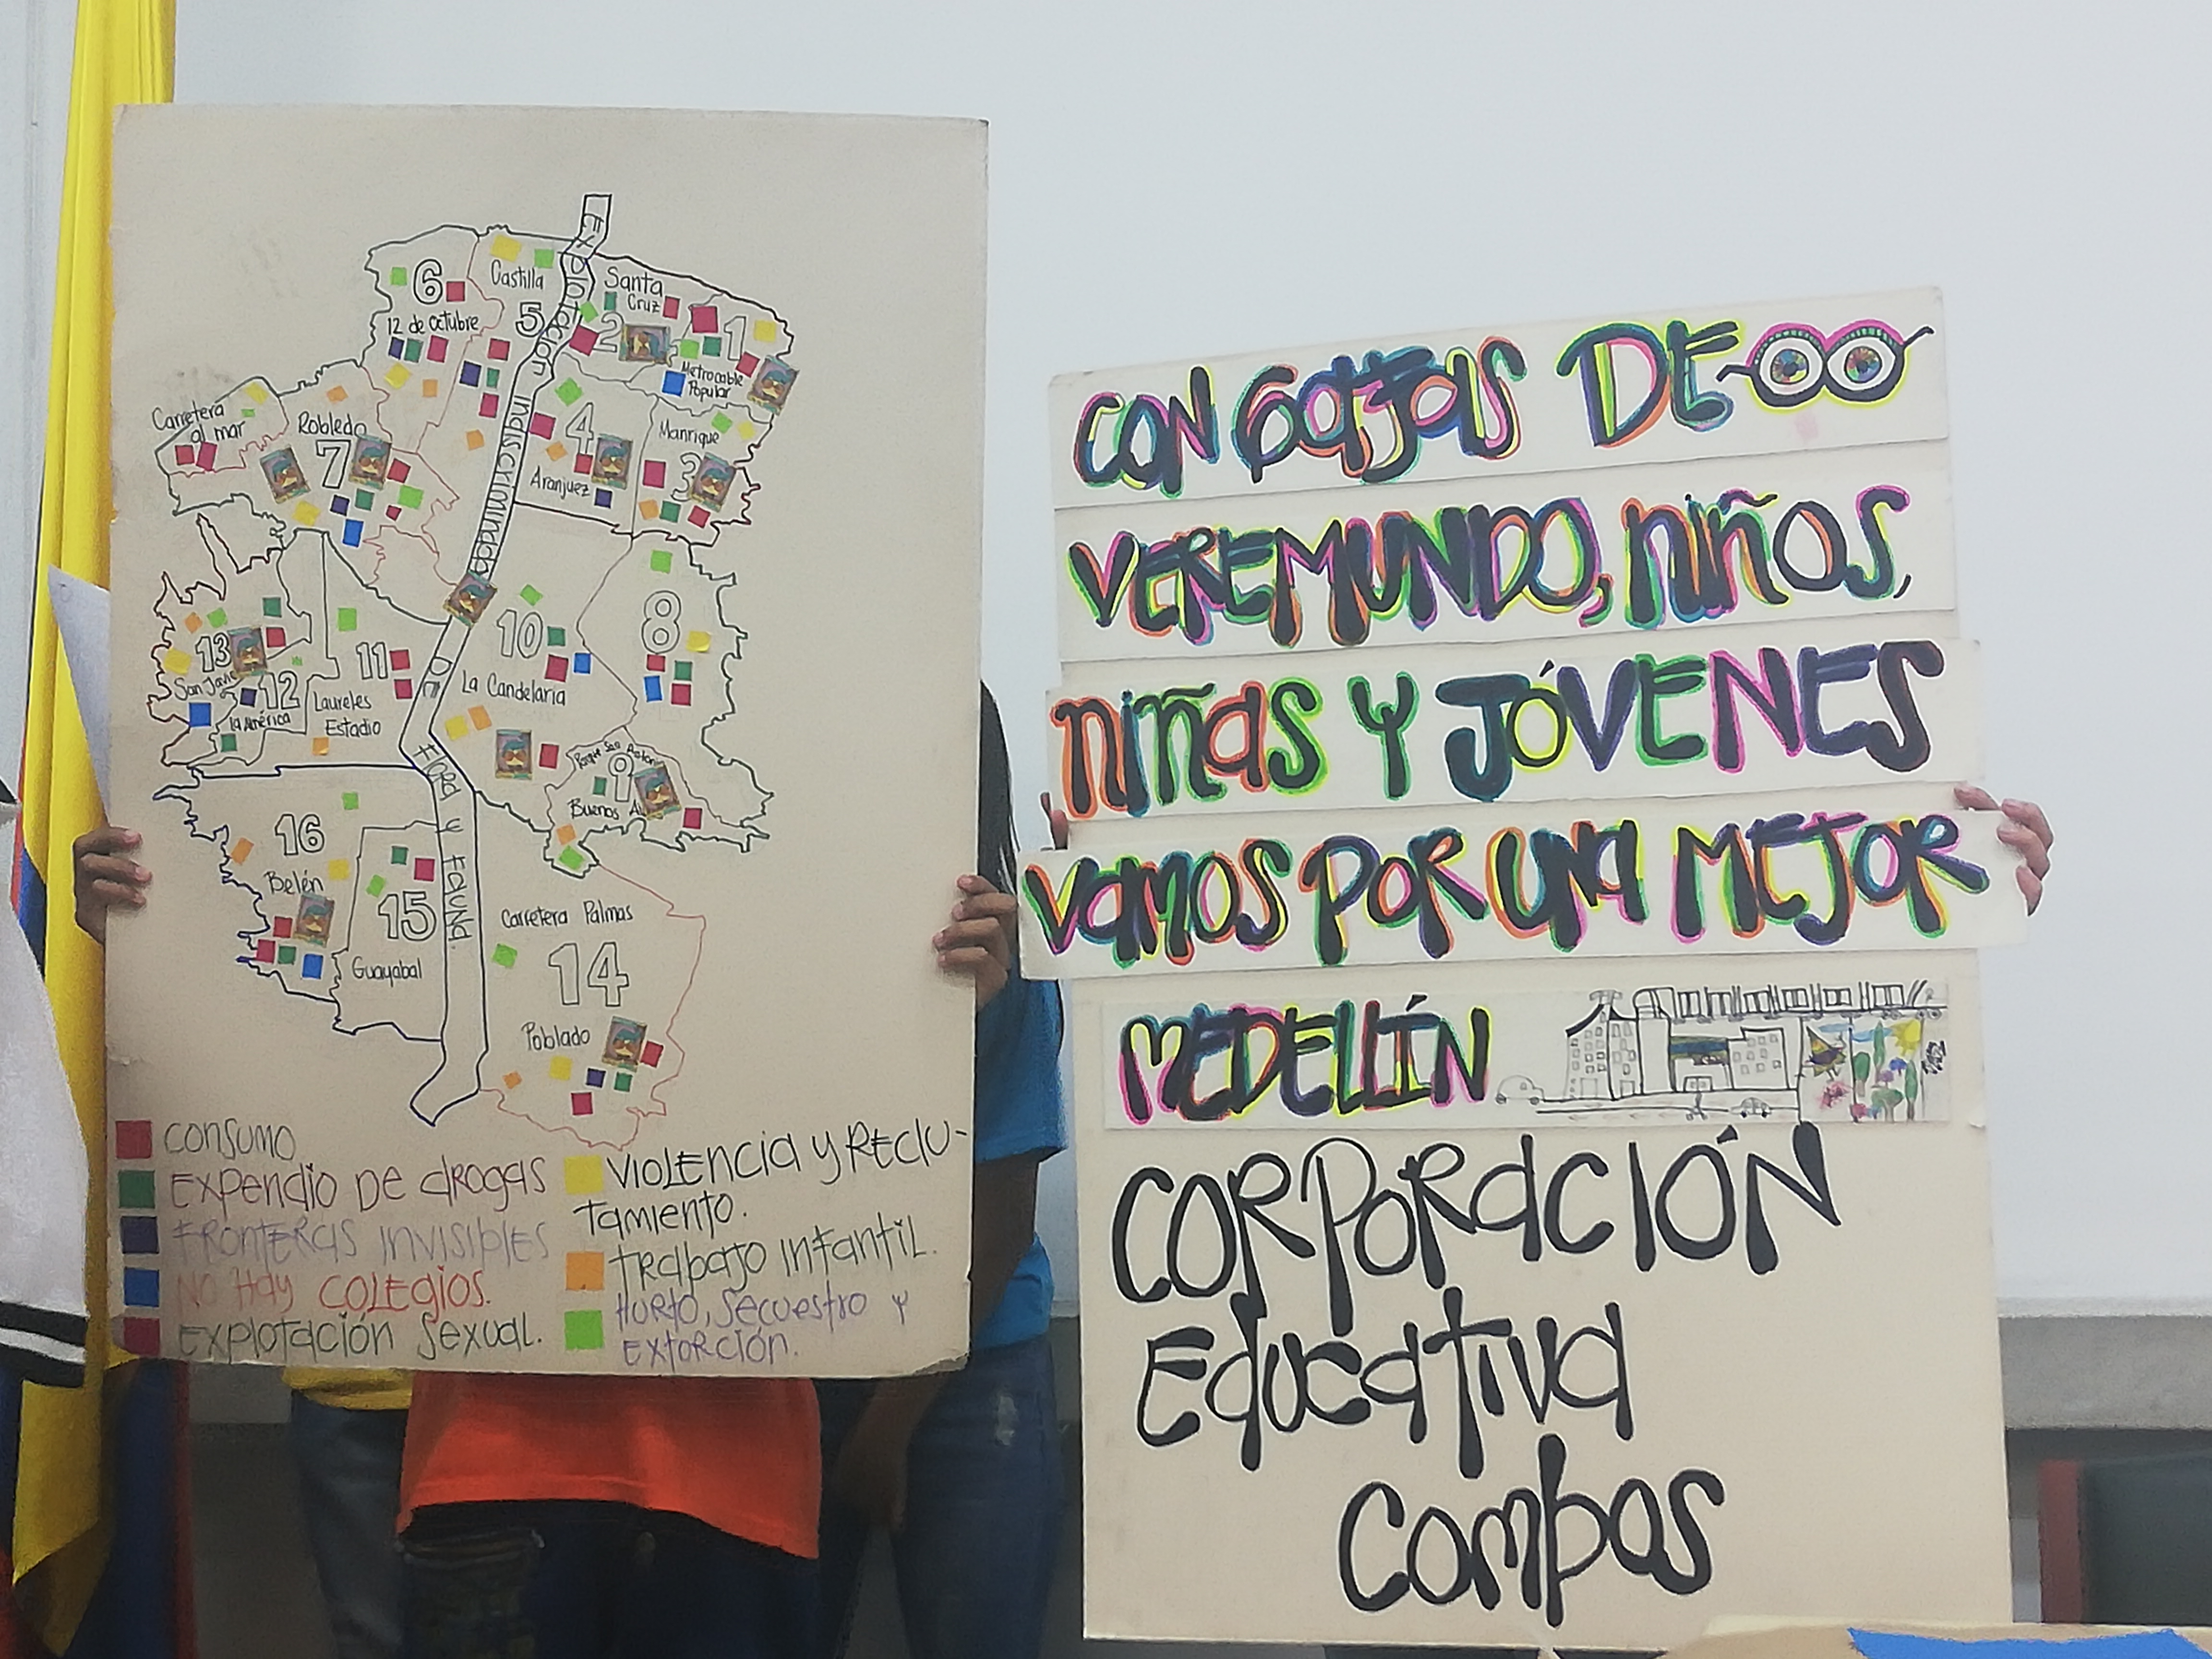 6
12 de octubre
Castilla
5
Santa
Cruz
2
1
Metrocable
Popular
Carretera
al mar
Robledo
7
4
Aranjuez
Manrique
3
13
San Javie
12
la América
11
Laureles
Estadio
10
La Candelaria
8
9
Buenos A
16
Belén
15
Guayabal
Carretera Palmas
14
Poblado
indiscriminada
DE
Flora y Fauna.
CONSUMO
Expendio De drogas
Fronteras invisibles
No Hay colegios.
Explotación sexual.
Violencia y Reclu-
tamiento.
trabajo infantil.
Hurto, secuestro y
extorción.
CON GAFAS DE
VEREMUNDO, niños,
niñas y JÓVENES
VAMOS POR UNA MEJOR
MEDELLÍN
CORPORACIÓN
Educativa
Combos